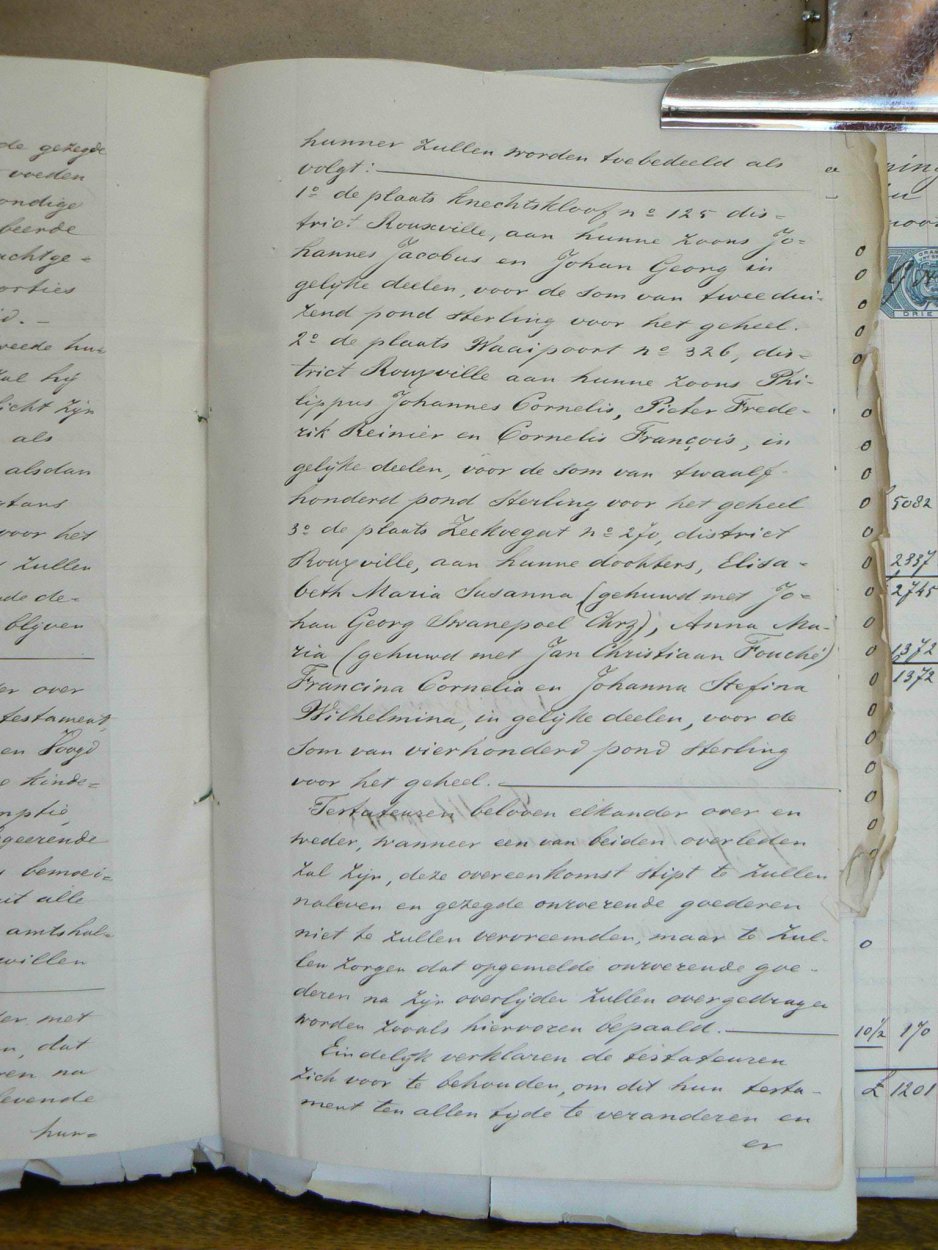 de gezegde
voeden
ondige
beerde
achtge=
orties
d. -
weede hu=
zal hij
licht zijn
als
alsdan
gtans
voor het
zullen
nde de=
blijven
er over
testament,
en Voogd
e kinde=
mptie,
geerende
bemoei=
uit alle
amtshal=
willen
ter met
n, dat
ren na
levende
hun=
hunner zullen worden toebedeeld als
volgt:
1º de plaats Knechtskloof nº 125 dis=
trict Rouxville, aan hunne zoons Jo=
hannes Jacobus en Johan Georg in
gelijke deelen, voor de som van twee dui-
zend pond Sterling voor het geheel.
2º de plaats Waaipoort nº 326, dis=
trict Rouxville aan hunne zoons Phi-
lippus Johannes Cornelis, Pieter Frede-
rik Reinier en Cornelis François, in
gelijke deelen, voor de som van twaalf-
honderd pond Sterling voor het geheel
3º de plaats Zeekoegat nº 270, district
Rouxville, aan hunne dochters, Elisa-
beth Maria Susanna (gehuwd met Jo-
han Georg Swanepoel Chrz), Anna Ma-
ria (gehuwd met Jan Christiaan Fouché)
Francina Cornelia en Johanna Stefina
Wilhelmina, in gelijke deelen, voor de
som van vierhonderd pond Sterling
voor het geheel.
Testateuren beloven elkander over en
weder, wanneer een van beiden overleden
zal zijn, deze overeenkomst stipt te zullen
naleven en gezegde onroerende goederen
niet te zullen vervreemden, maar te zul-
len zorgen dat opgemelde onroerende goe-
deren na zijn overlijden zullen overgedragen
worden zooals hiervoren bepaald.
Eindelijk verklaren de testateuren
zich voor te behouden, om dit hun testa-
ment ten allen tijde te veranderen en
er
ning
DRIE
5082
2337
2745
1372
1372
10½ 170
£ 1201